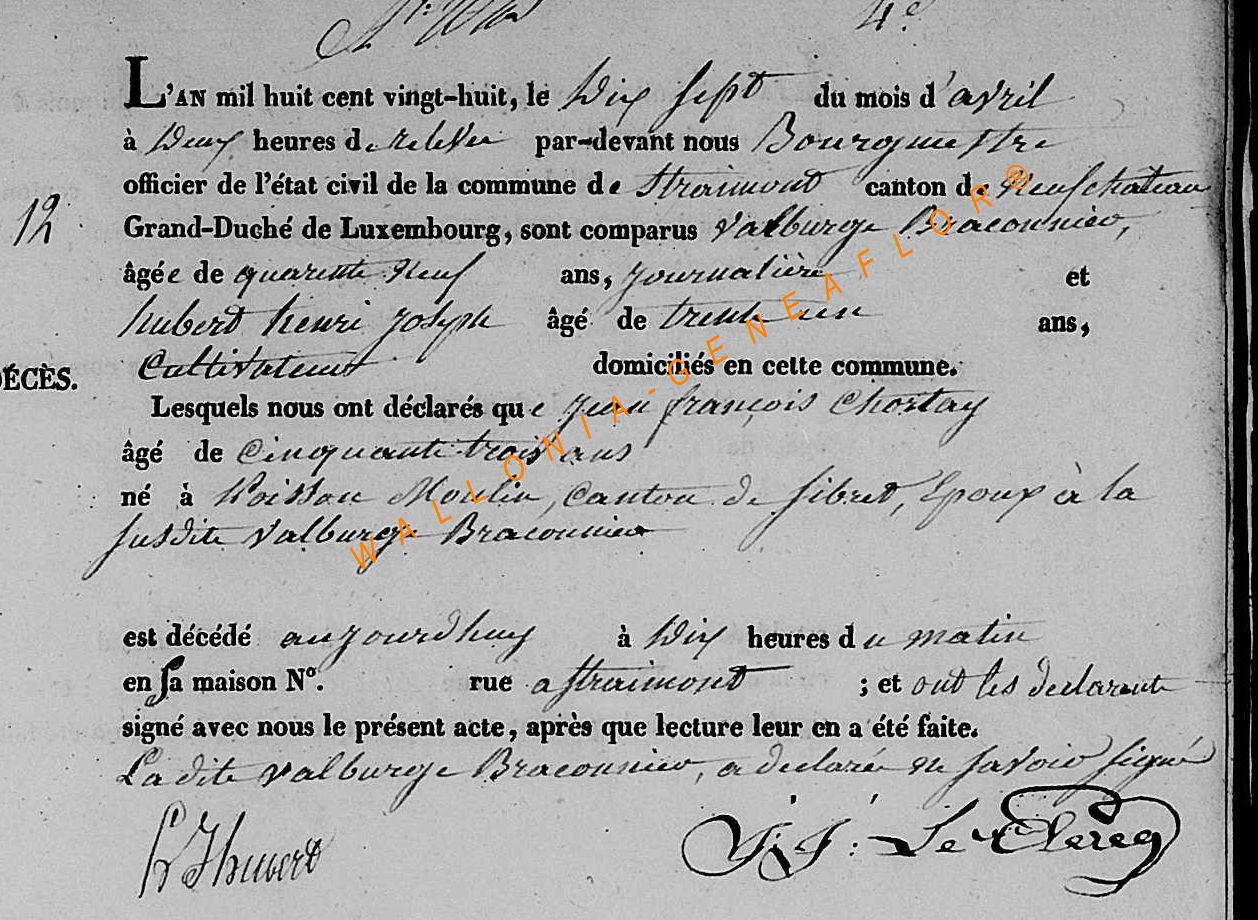 4e
L'AN mil huit cent vingt-huit, le Dix sept du mois d'avril
à Deux heures de relevée par-devant nous Bourgmestre
officier de l'état civil de la commune de Straimont canton de Neufchateau
12
Grand-Duché de Luxembourg, sont comparus Valburge Braconnier,
âgée de quarente neuf ans, journalière et
hubert henri joseph âgé de trente un ans,
DÉCÈS.
Cultivateur domiciliés en cette commune.
Lesquels nous ont déclarés que jean françois Chostay
âgé de Cinquante trois ans
né à Poisson Moulin, Canton de Sibret, Epoux à la
susdite Valburge Braconnier
est décédé aujourdhuy à Dix heures du matin
en sa maison No. rue a Straimont ; et ont les declarant
signé avec nous le présent acte, après que lecture leur en a été faite.
La dite Valburge Braconnier, a declaré ne savoir signé
hubert J: J: Le Clercq
WALLONIA-GENEAFLOR®